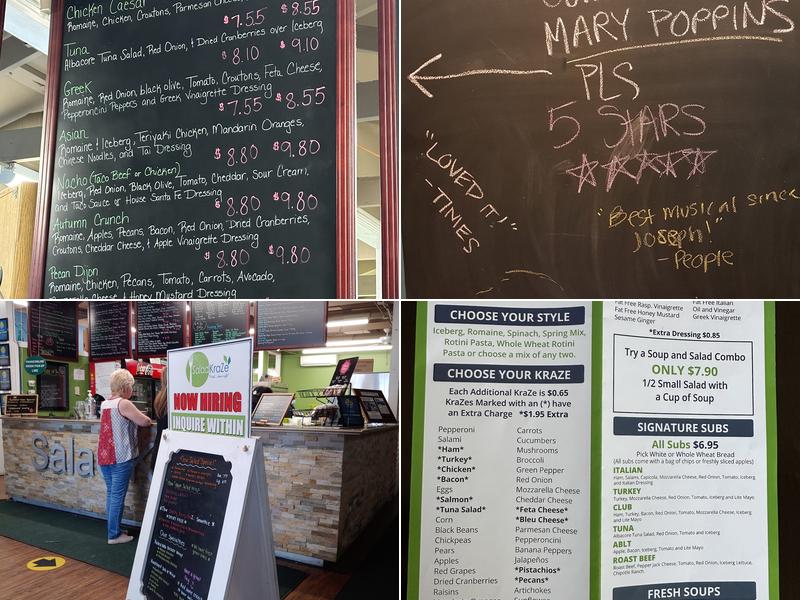 Chicken Caesar
Romaine, Chicken, Croutons, Parmesan Cheese,
$7.55 $8.55
Tuna
Albacore Tuna Salad, Red Onion, & Dried Cranberries over Iceberg
$8.10 $9.10
Greek
Romaine, Red Onion, black olive, Tomato, Croutons, Feta Cheese,
Pepperoncini Peppers and Greek Vinaigrette Dressing
$7.55 $8.55
Asian
Romaine & Iceberg, Teriyaki Chicken, Mandarin Oranges,
Chinese Noodles, and Tai Dressing
$8.80 $9.80
Nacho (Taco Beef or Chicken)
Iceberg, Red Onion, Black Olive, Tomato, Cheddar, Sour Cream,
and Taco Sauce or House Santa Fe Dressing
$8.80 $9.80
Autumn Crunch
Romaine, Apples, Pecans, Bacon, Red Onion, Dried Cranberries,
Croutons, Cheddar Cheese, & Apple Vinaigrette Dressing
$8.80 $9.80
Pecan Dijon
Romaine, Chicken, Pecans, Tomato, Carrots, Avocado,
Cheese & Honey Mustard Dressing
MARY POPPINS
PLS
5 STARS
"LOVED IT!"
-TIMES
"Best Musical since
Joseph!"
- People
SaladKraze
NOW HIRING
INQUIRE WITHIN
Sala
CHOOSE YOUR STYLE
Iceberg, Romaine, Spinach, Spring Mix,
Rotini Pasta, Whole Wheat Rotini
Pasta or choose a mix of any two.
CHOOSE YOUR KRAZE
Each Additional KraZe is $0.65
KraZes Marked with an (*) have
an Extra Charge *$1.95 Extra
Pepperoni
Salami
*Ham*
*Turkey*
*Chicken*
*Bacon*
Eggs
*Salmon*
*Tuna Salad*
Corn
Black Beans
Chickpeas
Pears
Apples
Red Grapes
Dried Cranberries
Raisins
Carrots
Cucumbers
Mushrooms
Broccoli
Green Pepper
Red Onion
Mozzarella Cheese
Cheddar Cheese
*Feta Cheese*
*Bleu Cheese*
Parmesan Cheese
Pepperoncini
Banana Peppers
Jalapeños
*Pistachios*
*Pecans*
Artichokes
Fat Free Rasp. Vinaigrette
Fat Free Honey Mustard
Sesame Ginger
Fat Free Italian
Oil and Vinegar
Greek Vinaigrette
*Extra Dressing $0.85
Try a Soup and Salad Combo
ONLY $7.90
1/2 Small Salad with
a Cup of Soup
SIGNATURE SUBS
All Subs $6.95
Pick White or Whole Wheat Bread
(All subs come with a bag of chips or freshly sliced apples)
ITALIAN
Ham, Salami, Capicola, Mozzarella Cheese, Red Onion, Tomato, Iceberg
and Italian Dressing
TURKEY
Turkey, Mozzarella Cheese, Red Onion, Tomato, Iceberg and Lite Mayo
CLUB
Ham, Turkey, Bacon, Red Onion, Tomato, Mozzarella Cheese, Iceberg
and Lite Mayo
TUNA
Albacore Tuna Salad, Red Onion, Tomato and Iceberg
ABLT
Apple, Bacon, Iceberg, Tomato and Lite Mayo
ROAST BEEF
Roast Beef, Pepper Jack Cheese, Tomato, Red Onion, Iceberg Lettuce,
Chipotle Ranch.
FRESH SOUPS